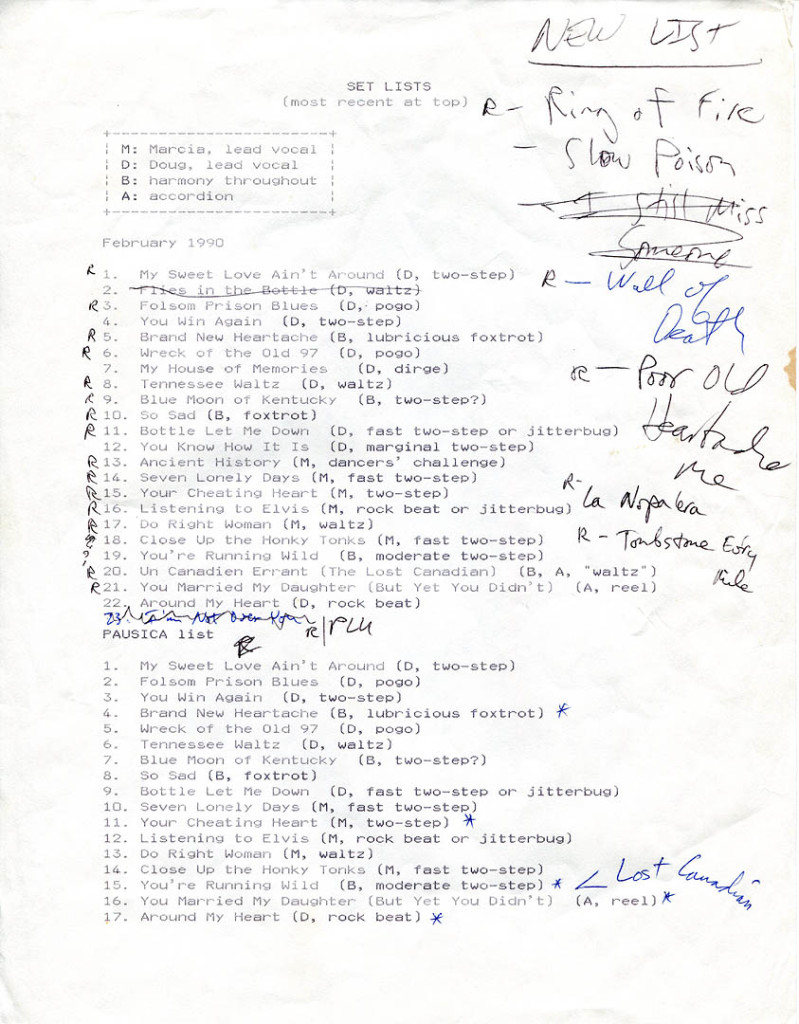 NEW LIST
SET LISTS
(most recent at top)
R - Ring of Fire
- Slow Poison
I Still Miss
Someone
R - Wall of
Death
R - Poor Old
Heartache
Me
R- La Nopalera
R - Tombstone Every
Mile
+-----------------------+
| M: Marcia, lead vocal |
| D: Doug, lead vocal |
| B: harmony throughout |
| A: accordion |
+-----------------------+
February 1990
R 1. My Sweet Love Ain't Around (D, two-step)
2. Flies in the Bottle (D, waltz)
R 3. Folsom Prison Blues (D, pogo)
4. You Win Again (D, two-step)
R 5. Brand New Heartache (B, lubricious foxtrot)
R 6. Wreck of the Old 97 (D, pogo)
7. My House of Memories (D, dirge)
R 8. Tennessee Waltz (D, waltz)
R 9. Blue Moon of Kentucky (B, two-step?)
R 10. So Sad (B, foxtrot)
R 11. Bottle Let Me Down (D, fast two-step or jitterbug)
12. You Know How It Is (D, marginal two-step)
R 13. Ancient History (M, dancers' challenge)
R 14. Seven Lonely Days (M, fast two-step)
R 15. Your Cheating Heart (M, two-step)
R 16. Listening to Elvis (M, rock beat or jitterbug)
R 17. Do Right Woman (M, waltz)
18. Close Up the Honky Tonks (M, fast two-step)
? 19. You're Running Wild (B, moderate two-step)
R 20. Un Canadien Errant (The Lost Canadian) (B, A, "waltz")
R 21. You Married My Daughter (But Yet You Didn't) (A, reel)
22. Around My Heart (D, rock beat)
23. I'm Not Over You R/PLU
PAUSICA list R
1. My Sweet Love Ain't Around (D, two-step)
2. Folsom Prison Blues (D, pogo)
3. You Win Again (D, two-step)
4. Brand New Heartache (B, lubricious foxtrot) *
5. Wreck of the Old 97 (D, pogo)
6. Tennessee Waltz (D, waltz)
7. Blue Moon of Kentucky (B, two-step?)
8. So Sad (B, foxtrot)
9. Bottle Let Me Down (D, fast two-step or jitterbug)
10. Seven Lonely Days (M, fast two-step)
11. Your Cheating Heart (M, two-step) *
12. Listening to Elvis (M, rock beat or jitterbug)
13. Do Right Woman (M, waltz)
14. Close Up the Honky Tonks (M, fast two-step)
15. You're Running Wild (B, moderate two-step) * < Lost Canadian
16. You Married My Daughter (But Yet You Didn't) (A, reel) *
17. Around My Heart (D, rock beat) *